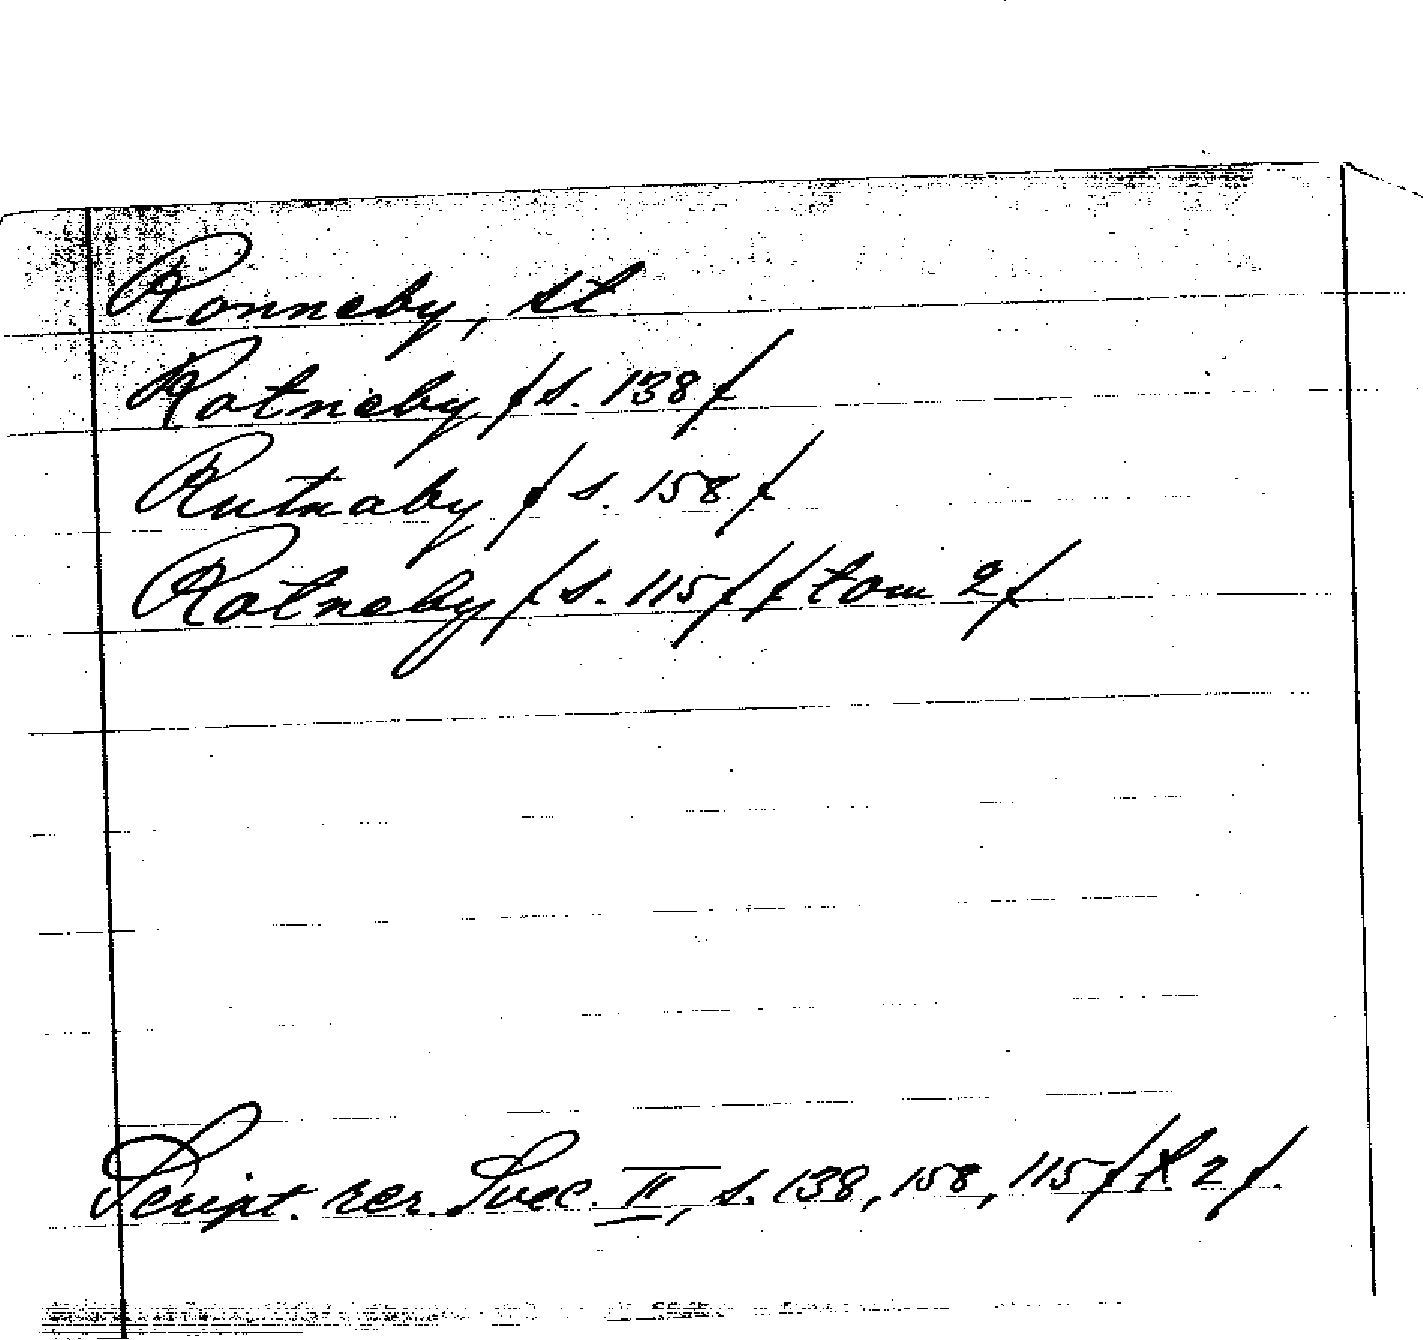 Ronneby, st
Rotneby /s. 138/
Rutnaby /s. 158/
Rotneby /s. 115/ /tom 2/
Script. rer. Svec. II, s. 138, 158, 115 /t. 2/.